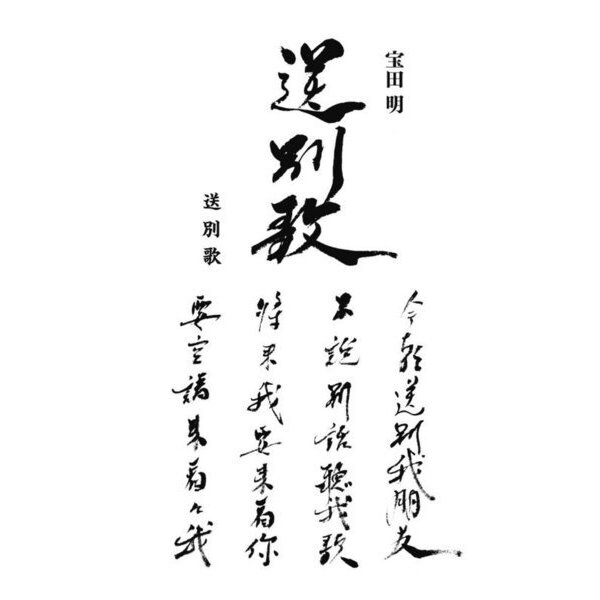 宝田 明
送別歌
送別歌
今朝送別我朋友
不說別話聽我歌
將来我要来看你
要請来看々我